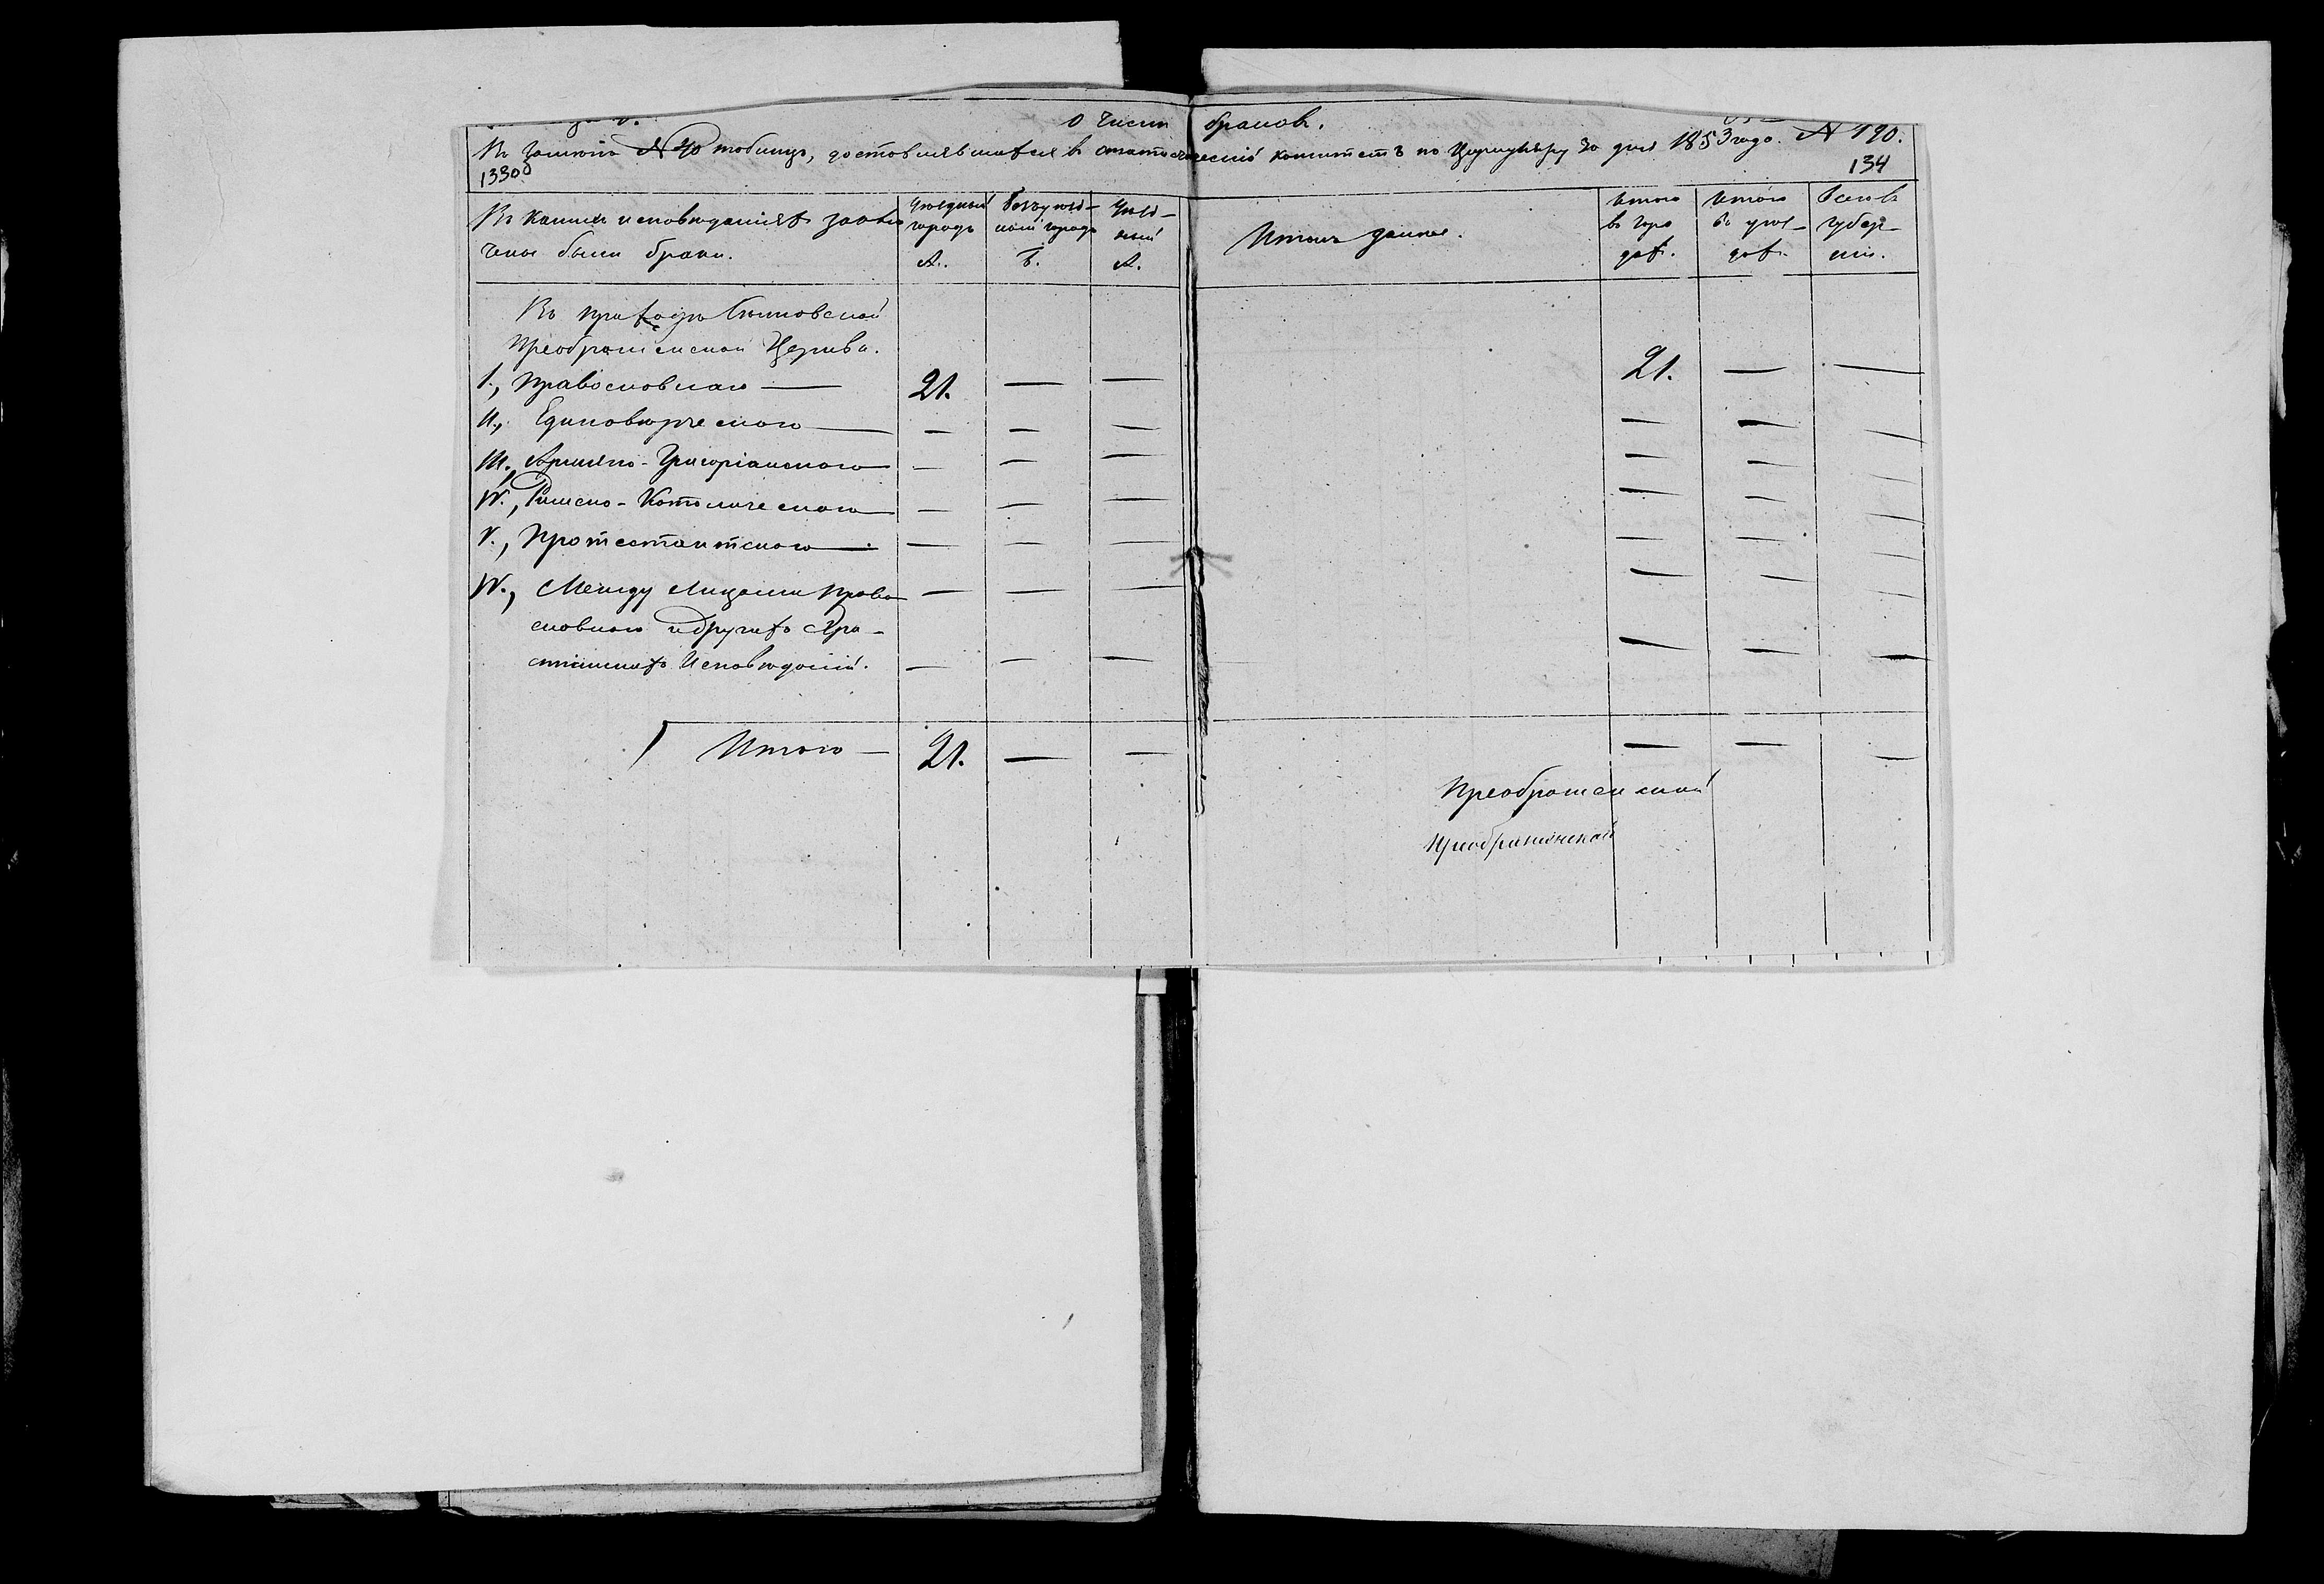 О числѣ браковъ.
Къ замѣнѣ № 40 таблицъ, доставлявшихся въ статистическій комитетъ по Циркуляру за дня 1853 года. № 190.
13300
134
Въ какихъ исповѣданіяхъ заклю
чены были браки.
Уѣздный городъ А.
Безуѣзд-ный городъ Б.
Уѣзд-ный А.
Итогъ
Итого въ горо дах.
Итого въ уѣз-дах.
Всего въ губер-ніи.
Въ приходѣ
Преображенской Церкви.
I., Православнаго — 21. — — 21. — —
II., Единовѣрческаго — — — — — — —
III., Армяно-Григоріанскаго — — — — — —
IV., Римско-Католическаго — — — — — —
V., Протестантскаго — — — — — — —
IV., Между Лицами Право
славнаго и другихъ Хри-
стіанскихъ Исповѣданій. — — — — — —
Итого — 21. — — — — —
Преображенской
Преображенской